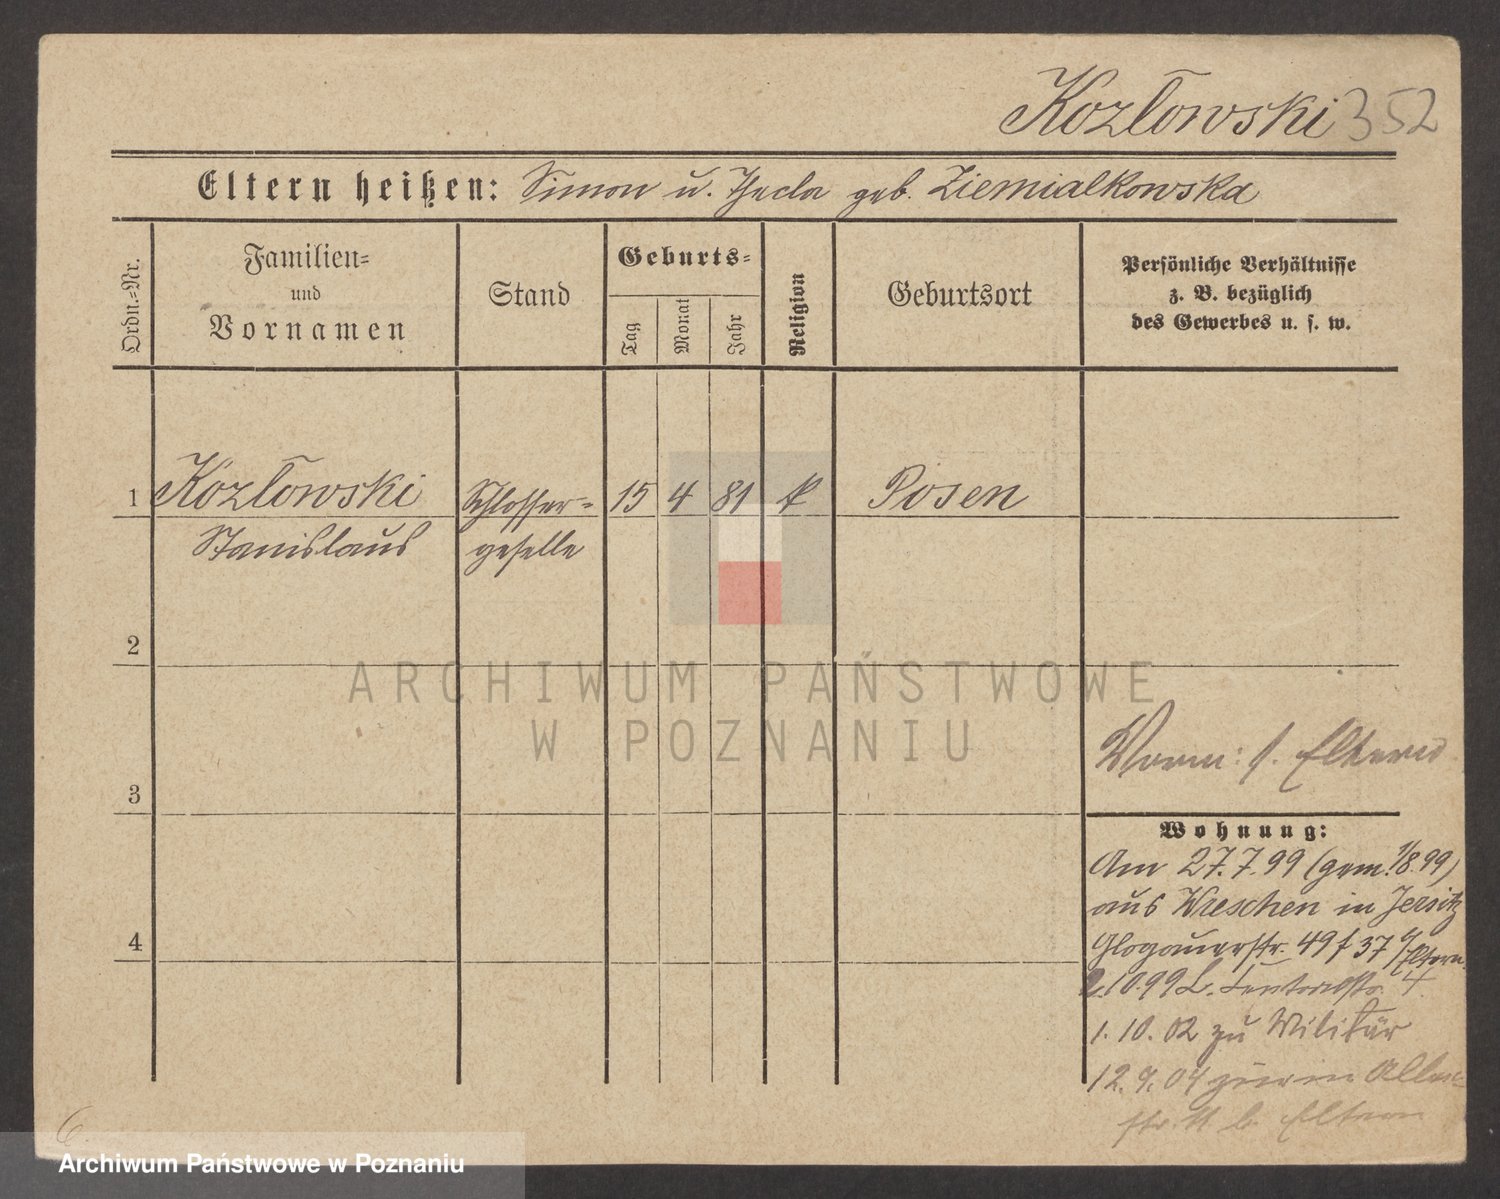 Kozłowski 352
Eltern heißen: Simon u. Thecla geb. Ziemialkowska
Ordn.-Nr.
Familien-
und
Vornamen
Stand
Geburts-
Tag
Monat
Jahr
Religion
Geburtsort
Persönliche Verhältnisse
z. B. bezüglich
des Gewerbes u. s. w.
1 Kozłowski Schlosser- 15 4 81 k Posen
Stanislaus geselle
2
ARCHIWUM PAŃSTWOWE
W POZNANIU
Vorm: s. Eltern
3
Wohnung:
Am 27.7.99 (gem. 1/8 99)
aus Wreschen in Jersitz
4
Glogauerstr. 49 f 37 Eltern
2.10.99 4
1. 10. 02 zu Militär
12. 9. 04
str. b. Eltern
6.
Archiwum Państwowe w Poznaniu